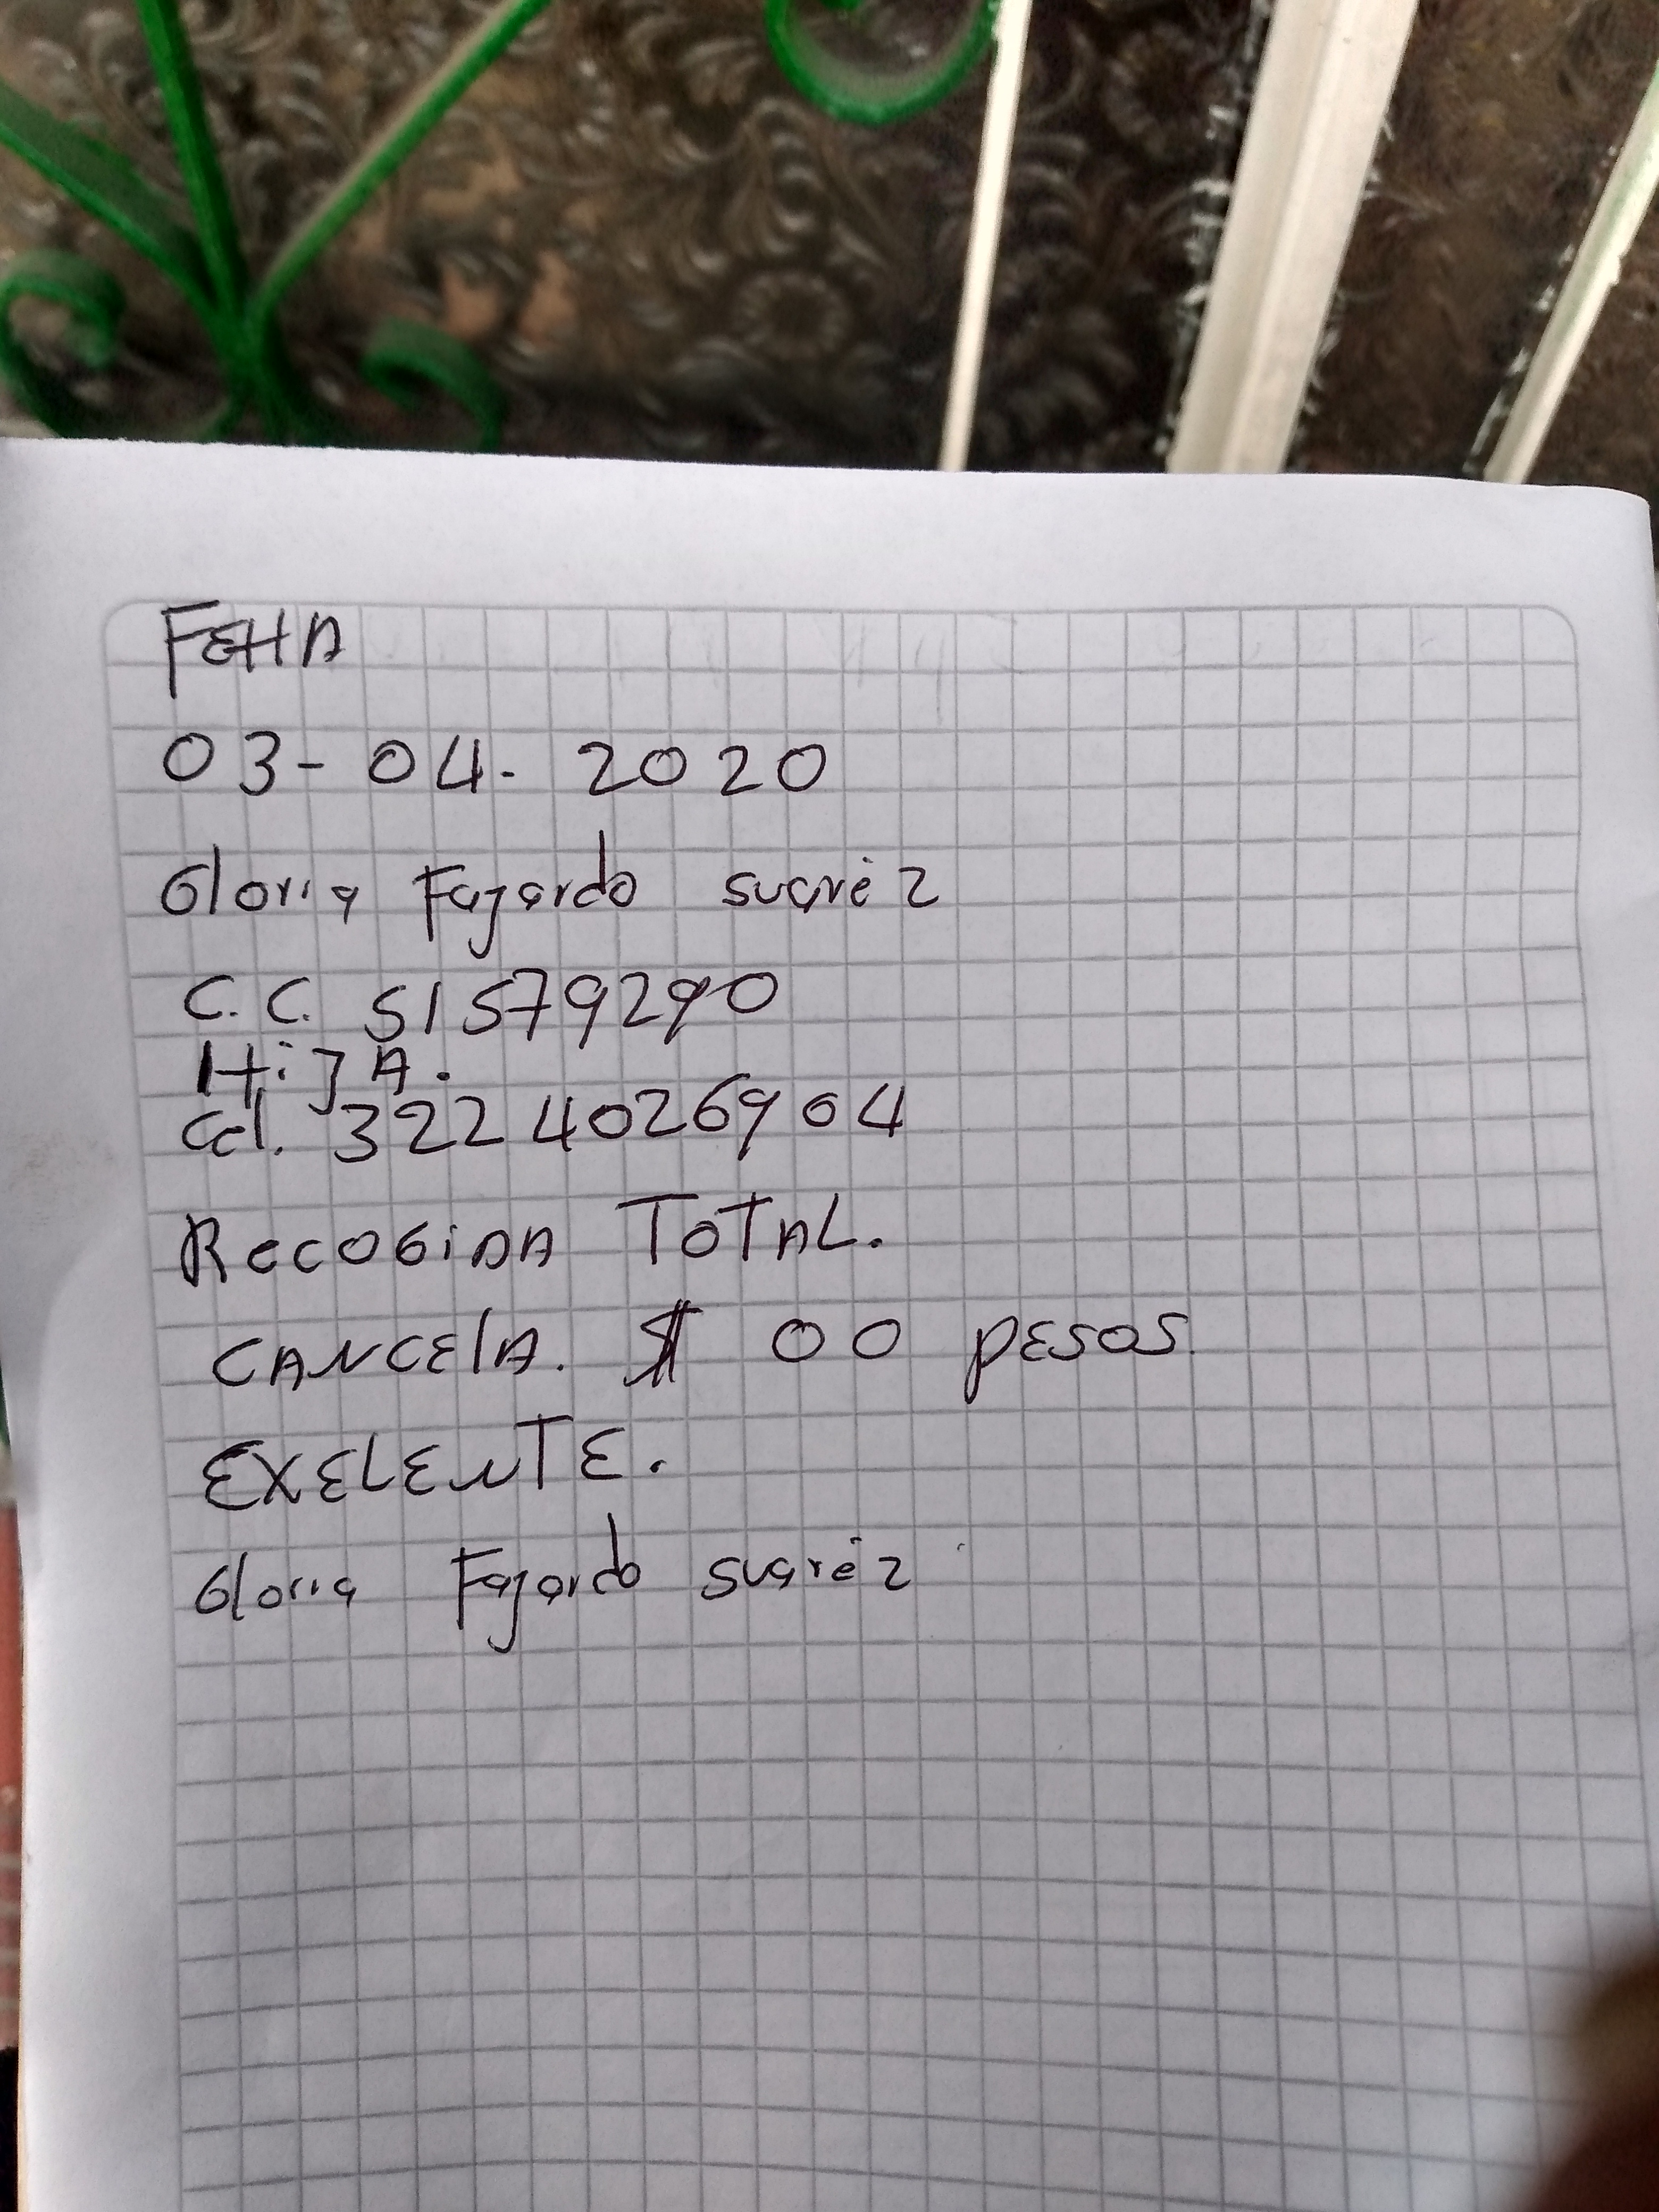 FEHA
03-04-2020
Gloria Fajardo suarez
C.C. 51579290
HijA.
Cel. 3224026904
RECOGiDA TOTAL.
CANCElA. $ 00 PESOS.
EXELENTE.
Gloria Fajardo suarez